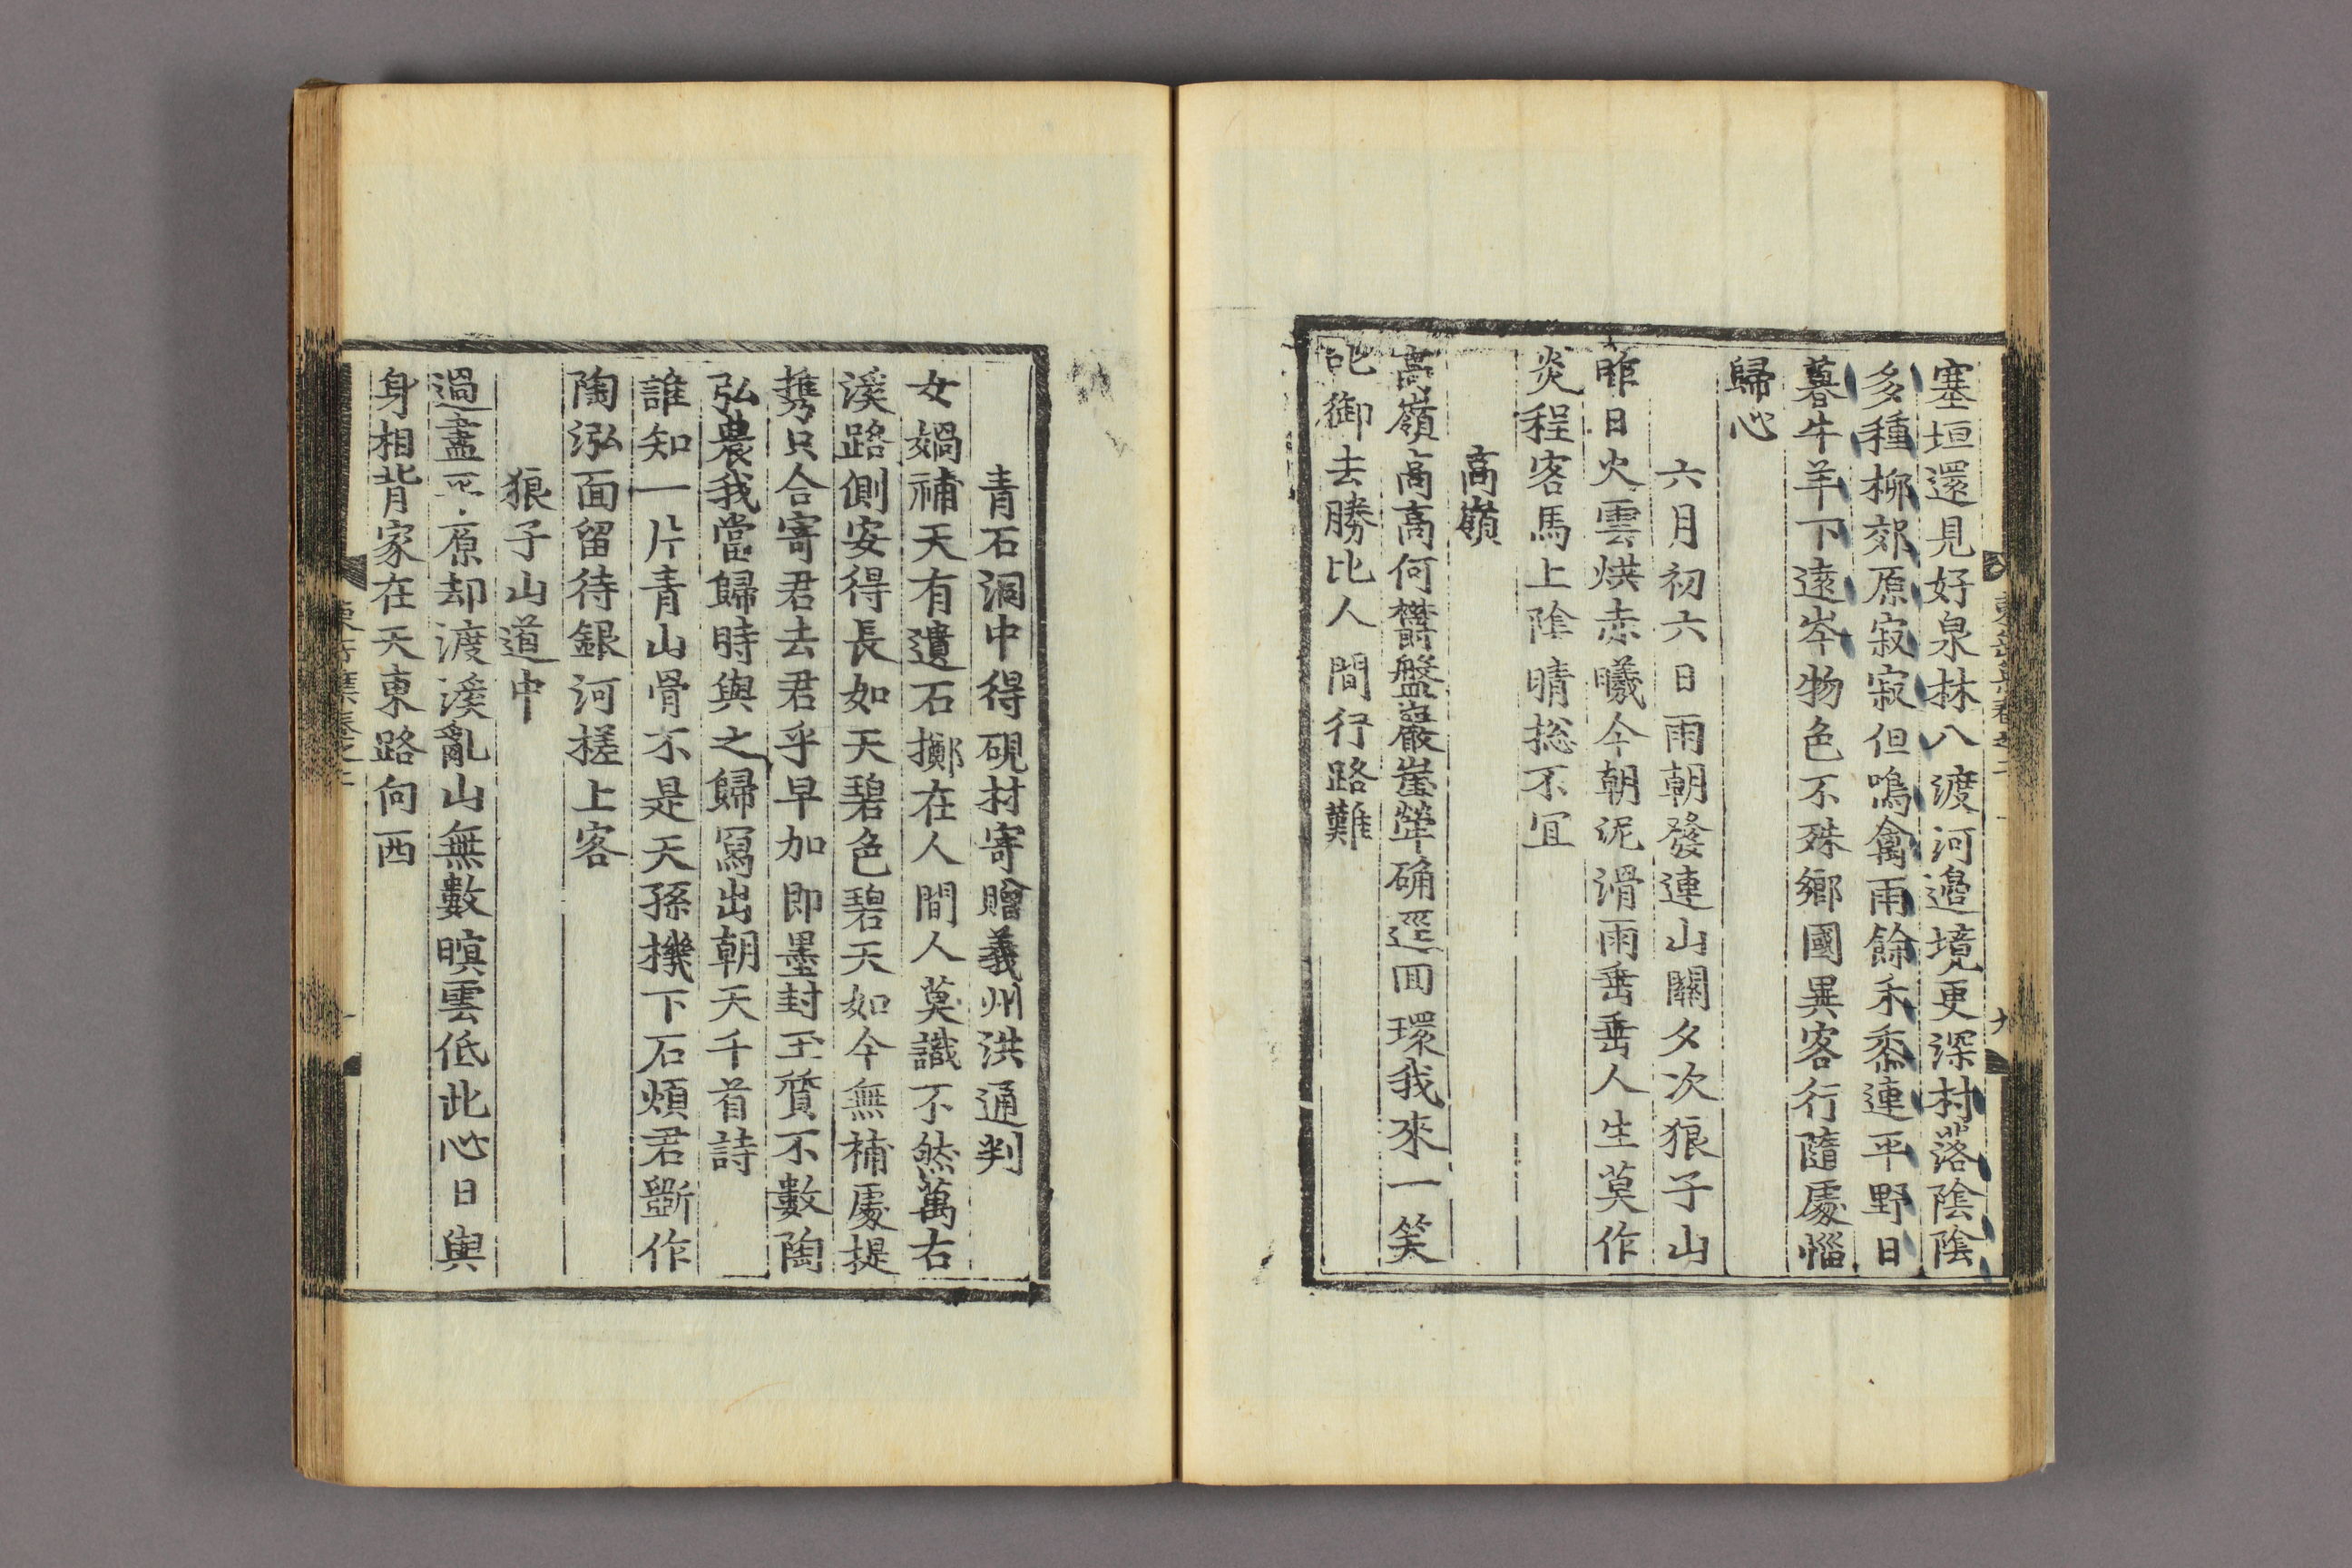 塞垣還見好泉林八渡河邉境更深村落陰陰
多種柳郊原寂寂但鳴禽雨餘禾黍連平野日
暮牛羊下遠岑物色不殊鄉國異客行隨處惱
歸心
六月初六日雨朝發連山關夕次狼子山
昨日火雲烘赤曦今朝泥滑雨垂垂人生莫作
炎程客馬上陰晴捴不冝
高嶺
高嶺高高何欝盤巖崖犖确逕回環我來一笑
叱御去勝比人間行路難
青石洞中得硯材寄贈義州洪通判
女媧補天有遺石擲在人間人莫識不然萬古
溪路側安得長如天碧色碧天如今無補處提
携只合寄君去君乎早加即墨封玉質不數陶
弘農我當歸時與之歸冩出朝天千首詩
誰知一片青山骨不是天孫機下石煩君斲作
陶泓面留待銀河槎上客
狼子山道中
過盡平原却渡溪亂山無數暝雲低此心日與
身相背家在天東路向西